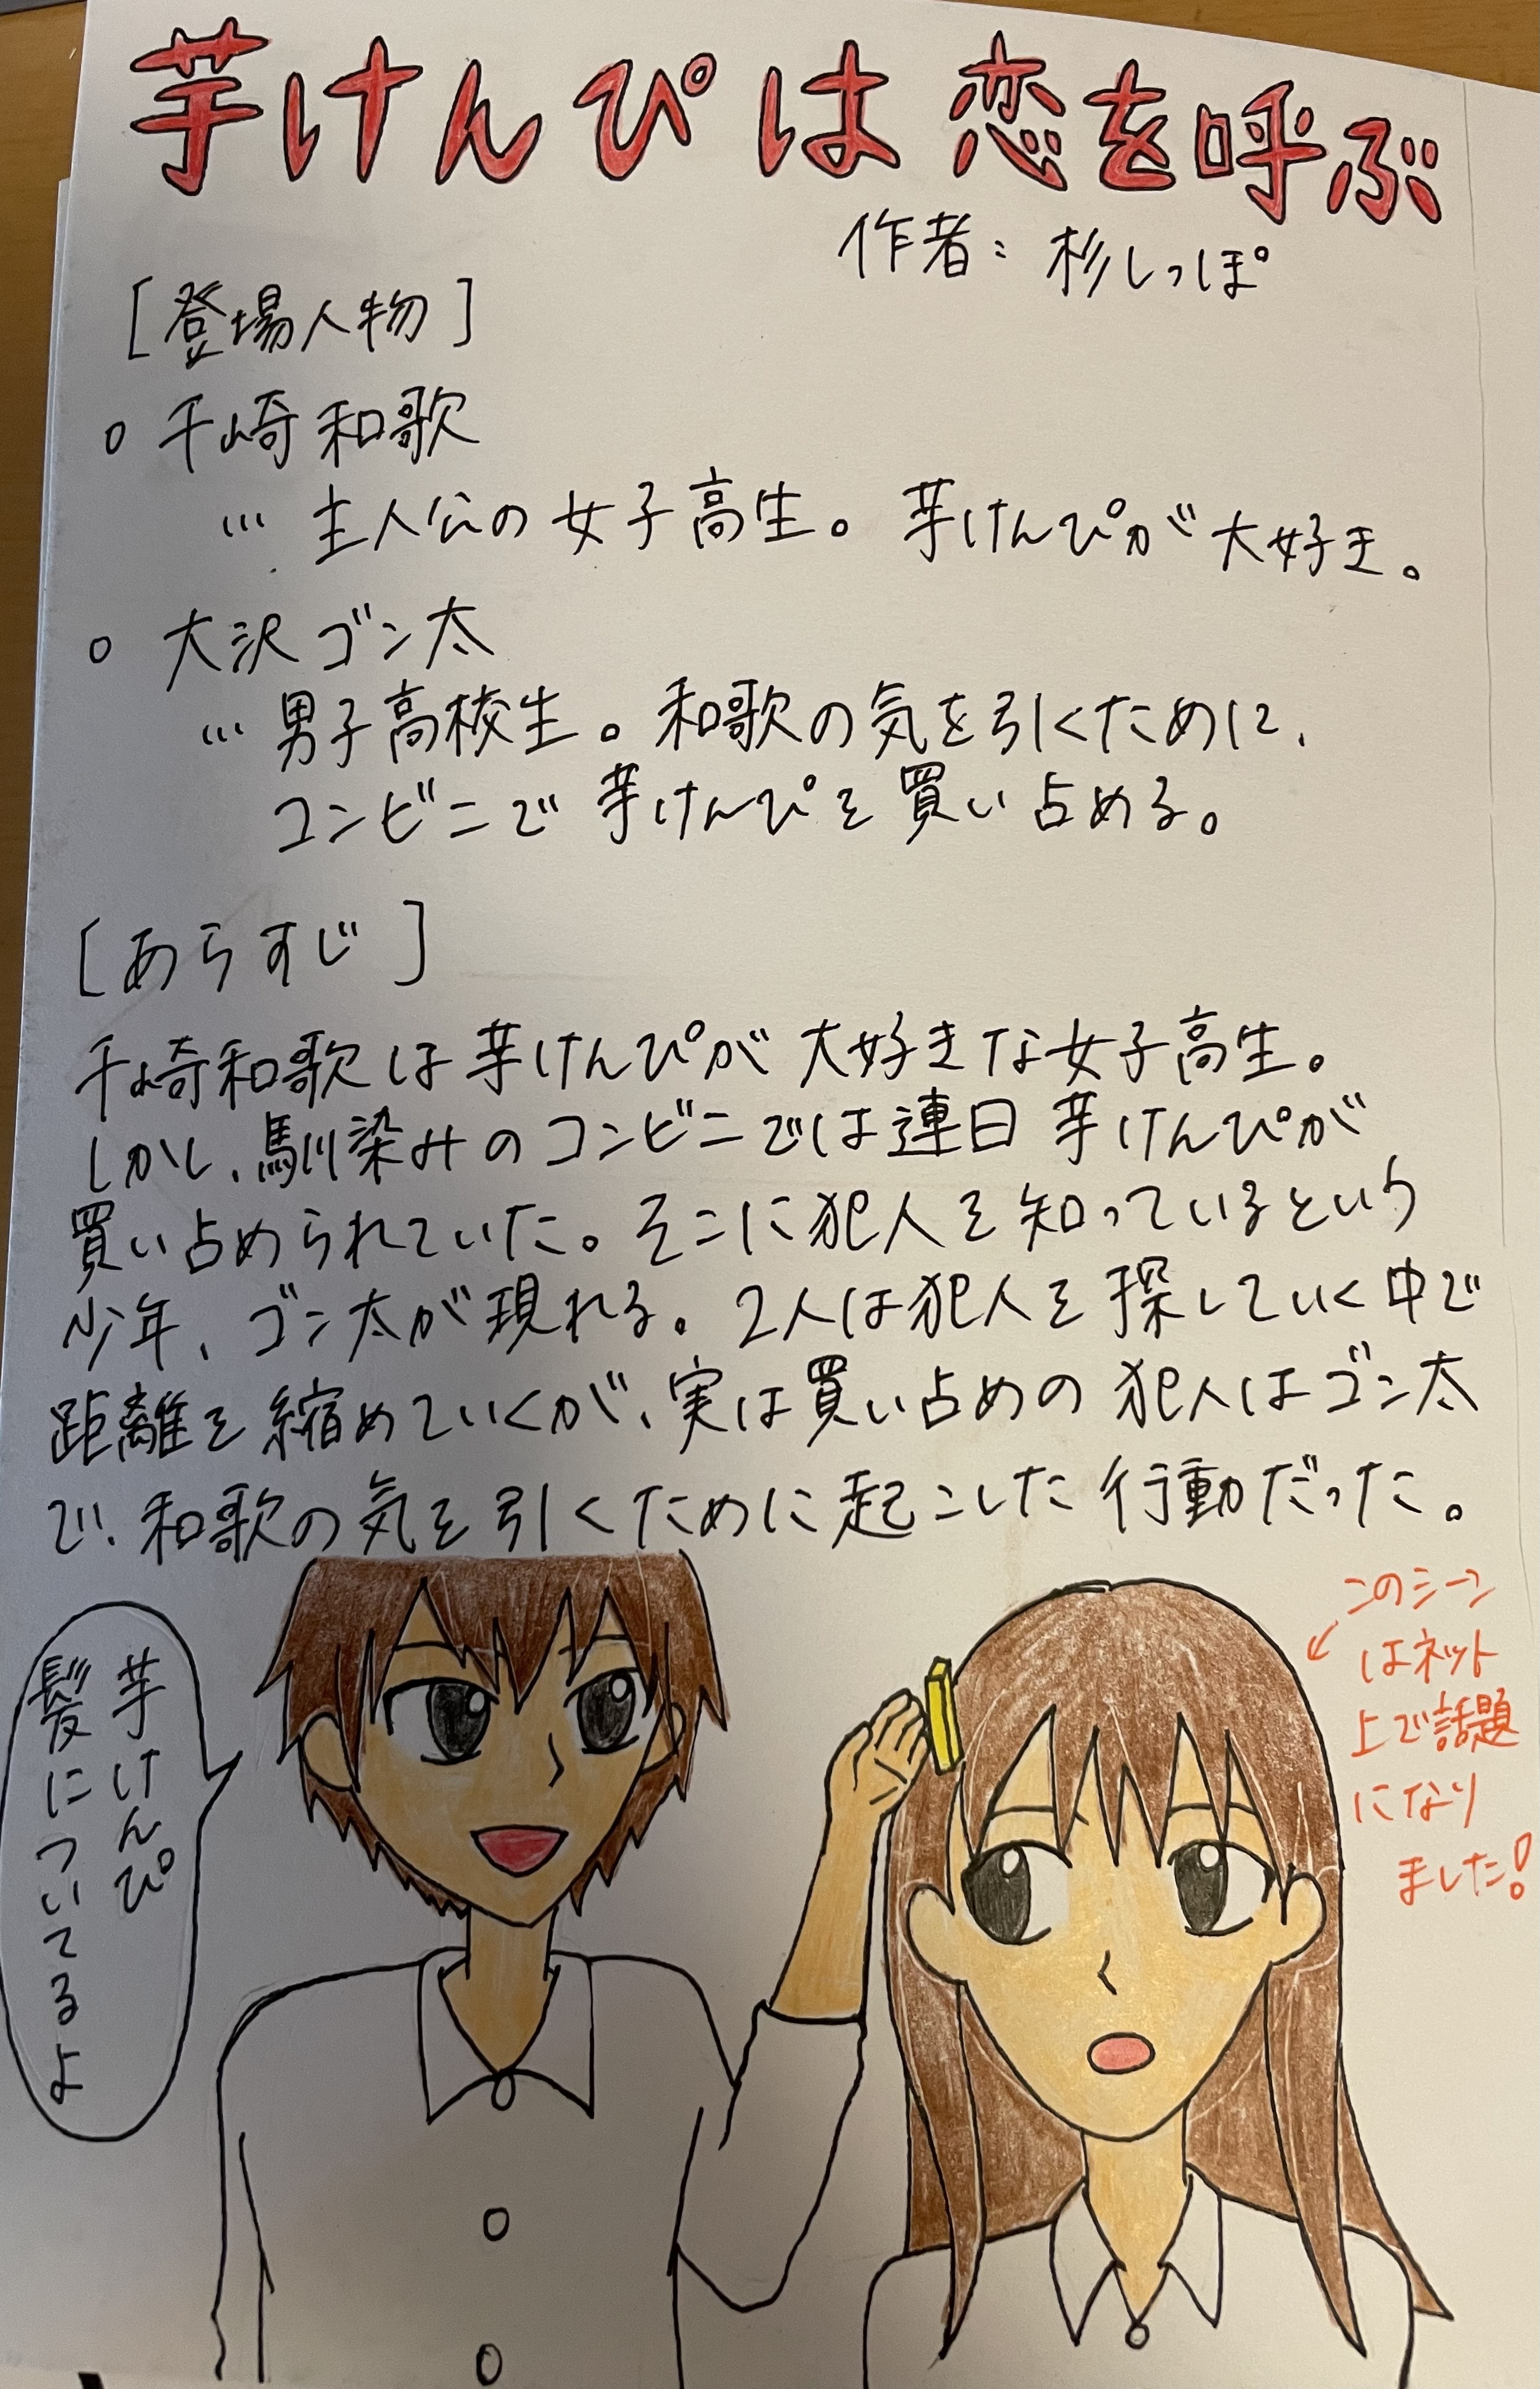 芋けんぴは恋を呼ぶ
作者:杉しっぽ
[登場人物]
○ 千崎和歌
… 主人公の女子高生。芋けんぴが大好き。
○ 大沢ゴン太
… 男子高校生。和歌の気を引くために、
コンビニで芋けんぴを買い占める。
[あらすじ]
千崎和歌は芋けんぴが大好きな女子高生。
しかし、馴染みのコンビニでは連日芋けんぴが
買い占められていた。そこに犯人を知っているという
少年、ゴン太が現れる。2人は犯人を探していく中で
距離を縮めていくが、実は買い占めの犯人はゴン太
で、和歌の気を引くために起こした行動だった。
芋けんぴ
髪についてるよ
このシーン
はネット
上で話題
になり
ました!